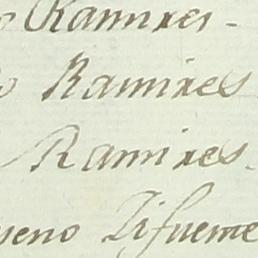 o Ramires -
o Ramires
Ramires.
ueno Zifueme